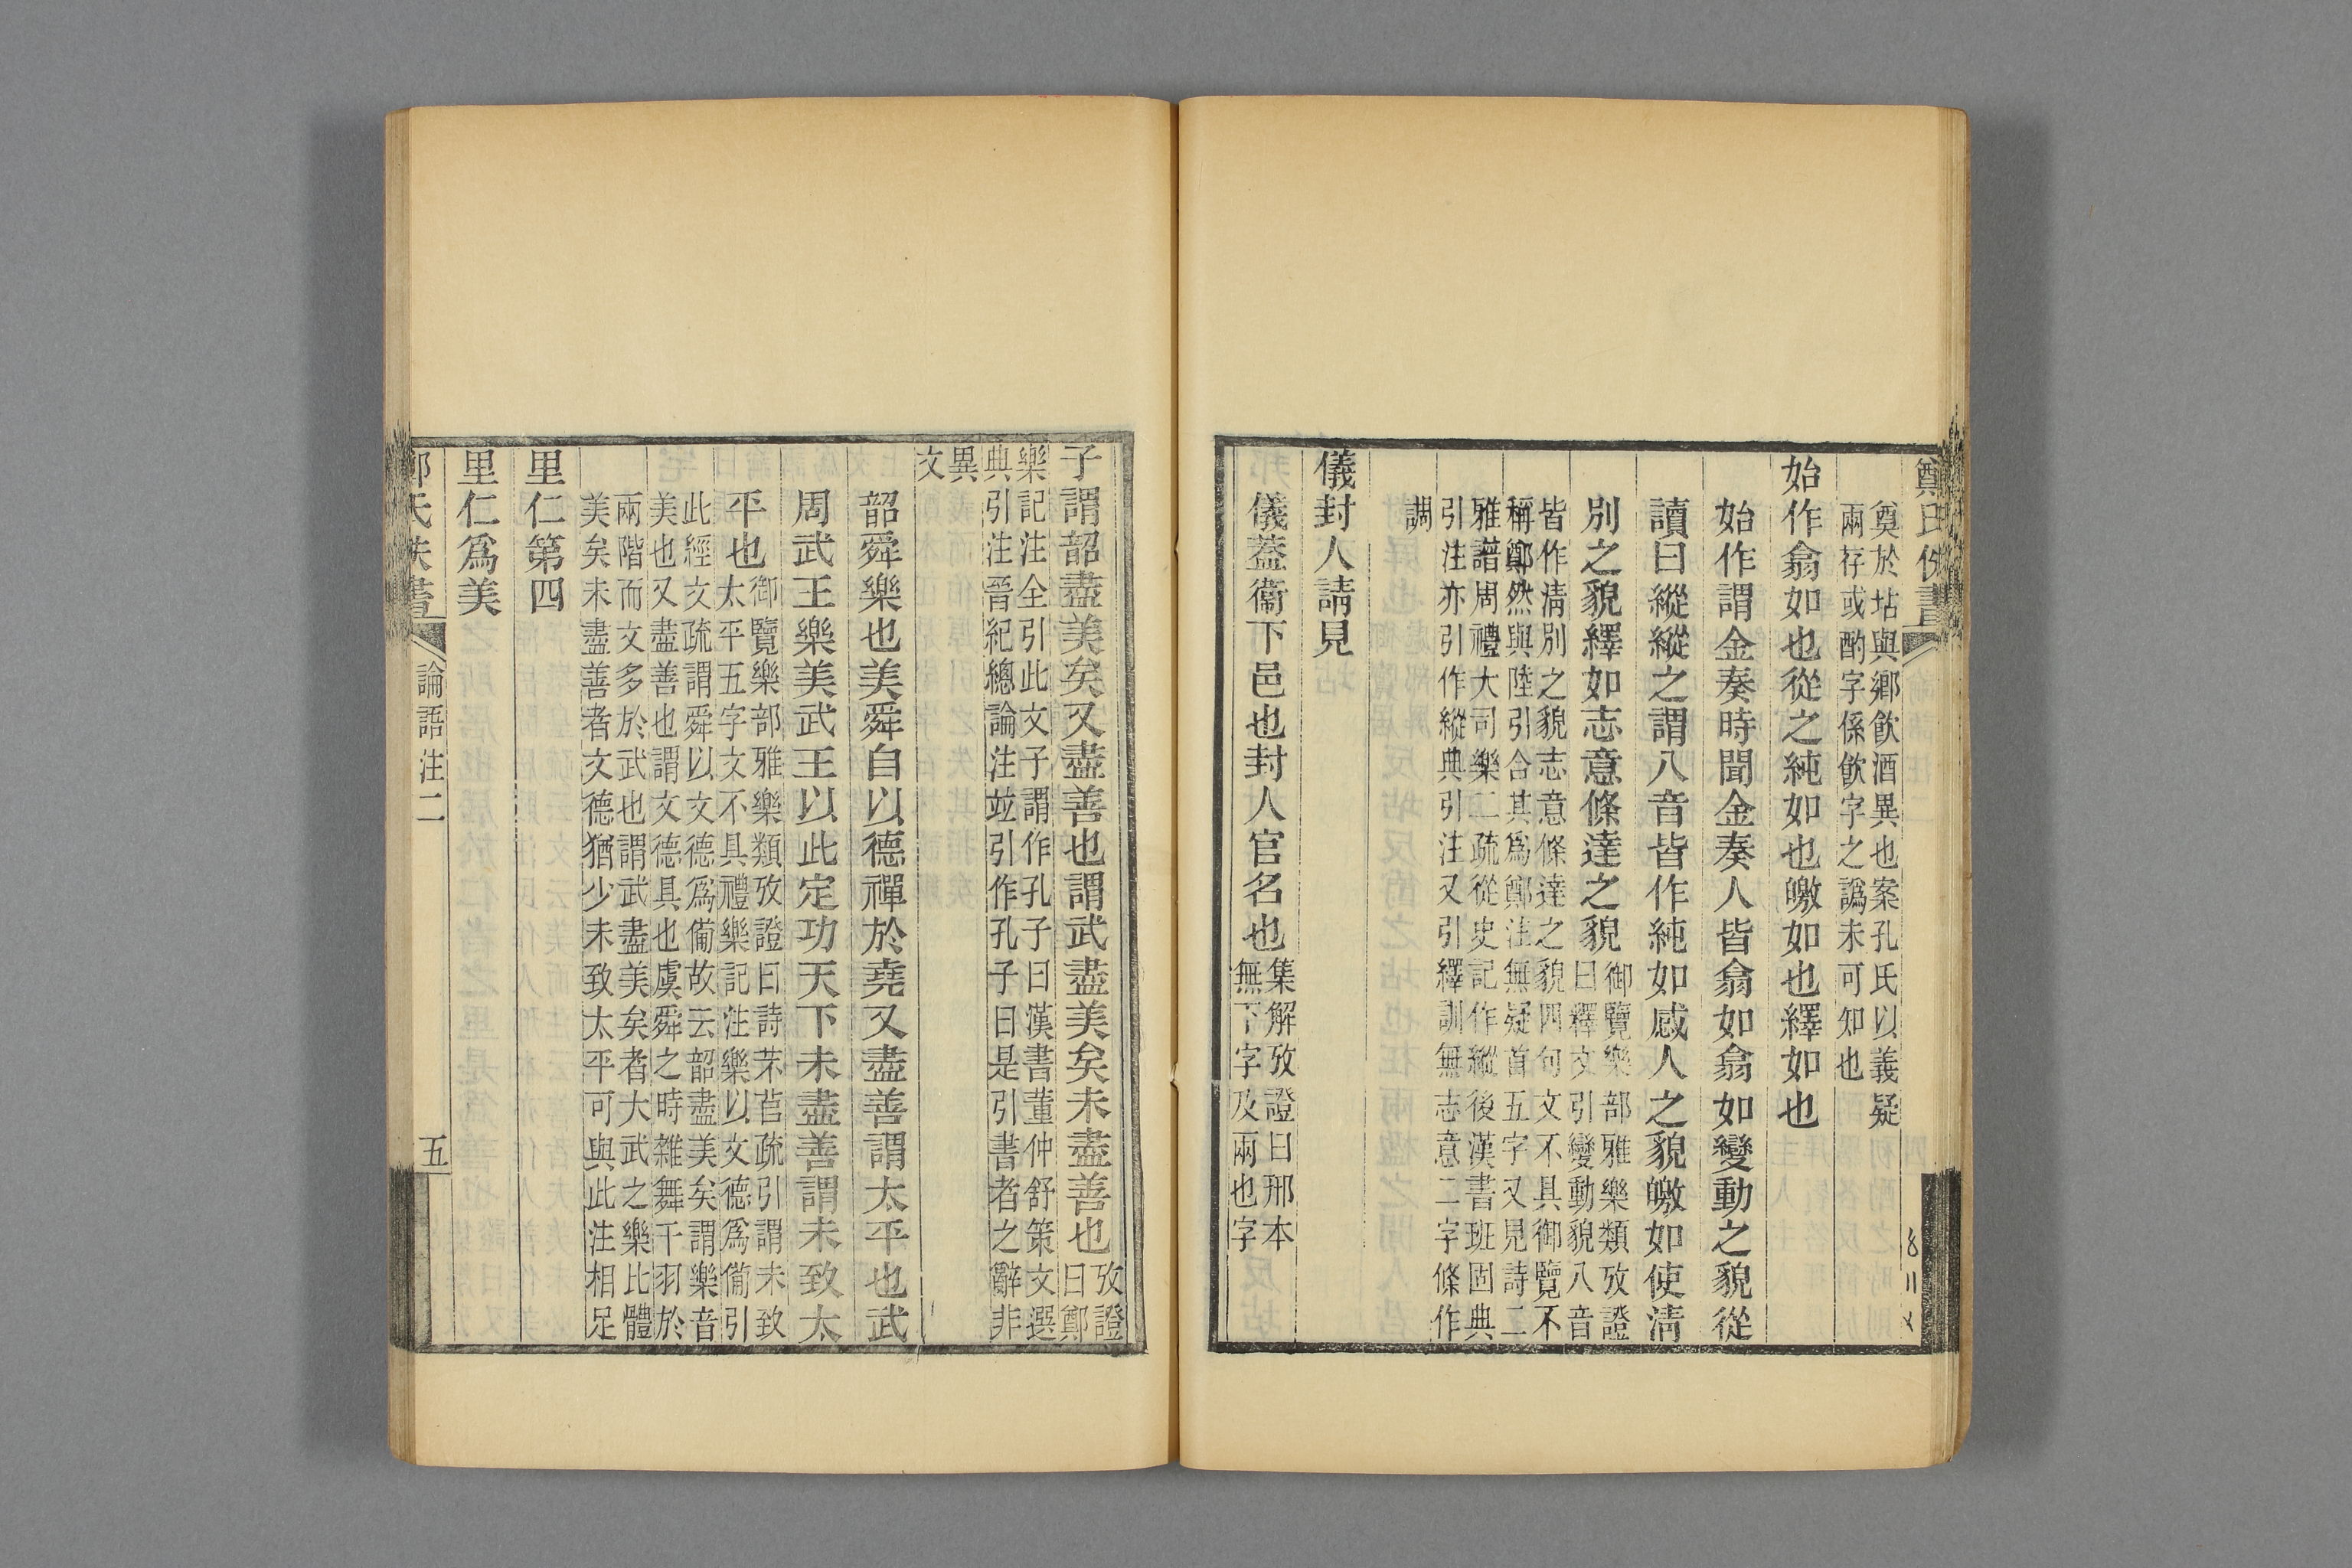 鄭氏佚書
奠於坫與鄉飮酒異也案孔氏以義疑
兩存或酌字係飮字之譌未可知也
始作翕如也從之純如也皦如也繹如也
始作謂金奏時聞金奏人皆翕如翕如變動之貌從
讀曰縱縱之謂八音皆作純如感人之貌皦如使淸
別之貌繹如志意條達之貌御覽樂部雅樂類攷證
曰釋文引變動貌八音
皆作淸別之貌志意條達之貌四句文不具御覽不
稱鄭然與陸引合其爲鄭注無疑首五字又見詩二
雅譜周禮大司樂二疏從史記作縱後漢書班固典
引注亦引作縱典引注又引繹訓無志意二字條作
調
儀封人請見
儀蓋衞下邑也封人官名也集解攷證曰邢本
無下字及兩也字
子謂韶盡美矣又盡善也謂武盡美矣未盡善也攷證
曰鄭
樂記注全引此文子謂作孔子曰漢書董仲舒策文選
典引注晉紀總論注竝引作孔子曰是引書者之辭非
異
文
韶舜樂也美舜自以德禪於堯又盡善謂太平也武
周武王樂美武王以此定功天下未盡善謂未致太
平也御覽樂部雅樂類攷證曰詩芣苢疏引謂未致
太平五字文不具禮樂記注樂以文德爲備引
此經文疏謂舜以文德爲備故云韶盡美矣謂樂音
美也又盡善也謂文德具也虞舜之時雜舞干羽於
兩階而文多於武也謂武盡美矣者大武之樂比體
美矣未盡善者文德猶少未致太平可與此注相足
里仁第四
里仁爲美
鄭氏佚書
論語注二
五